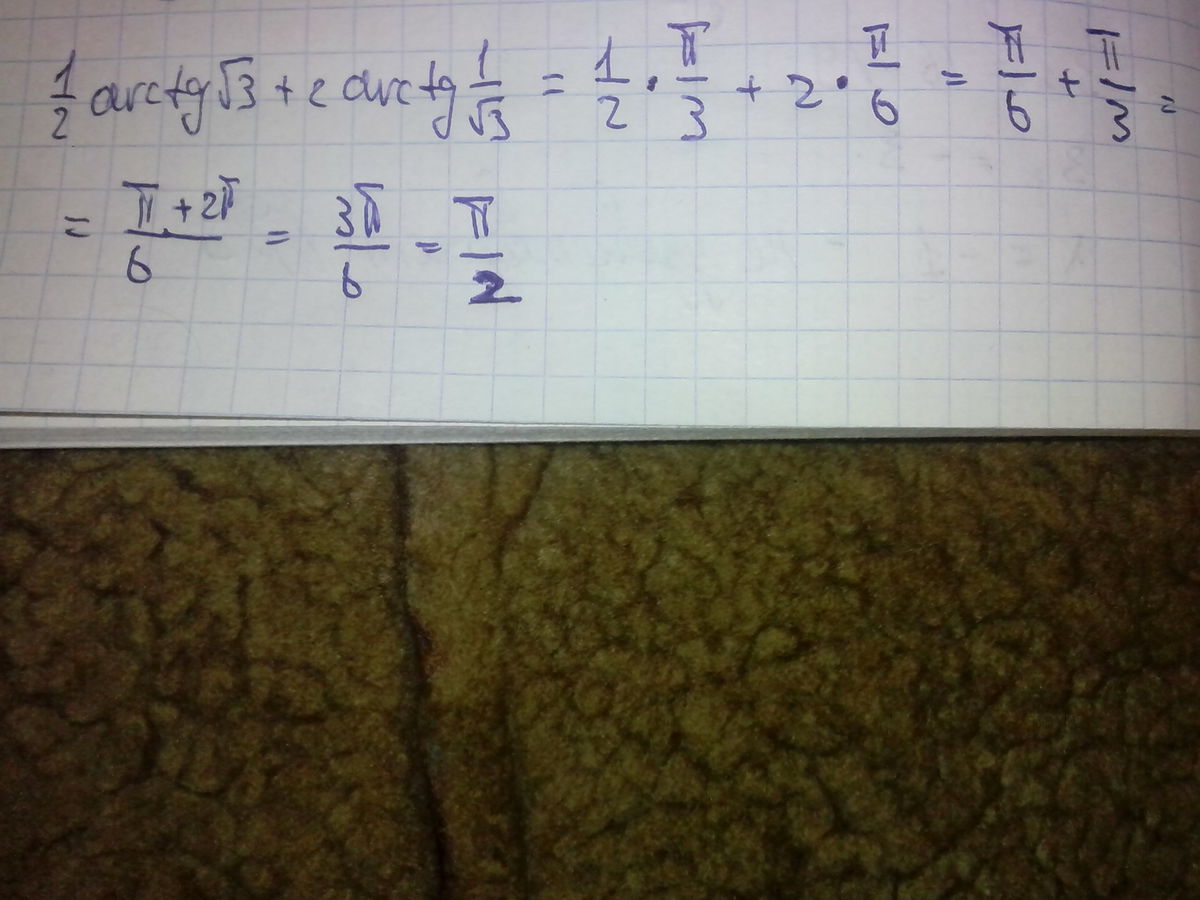 1/2 arctg √3 + 2 arctg 1/√3 = 1/2 · π/3 + 2 · π/6 = π/6 + π/3 =
= (π + 2π)/6 = 3π/6 = π/2